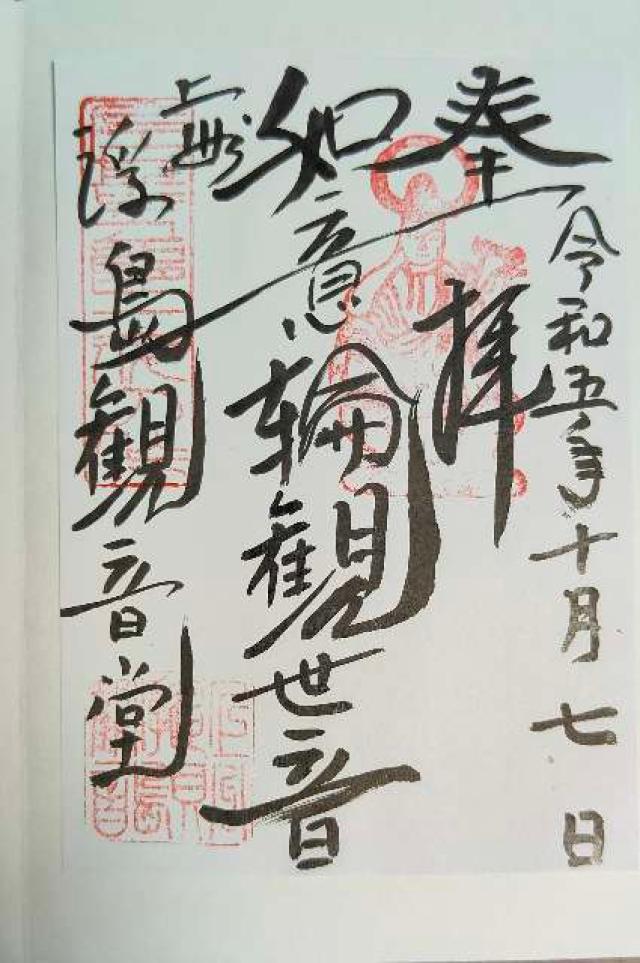 奉拝
令和五年十月七日
如意輪観世音
浮島観音堂